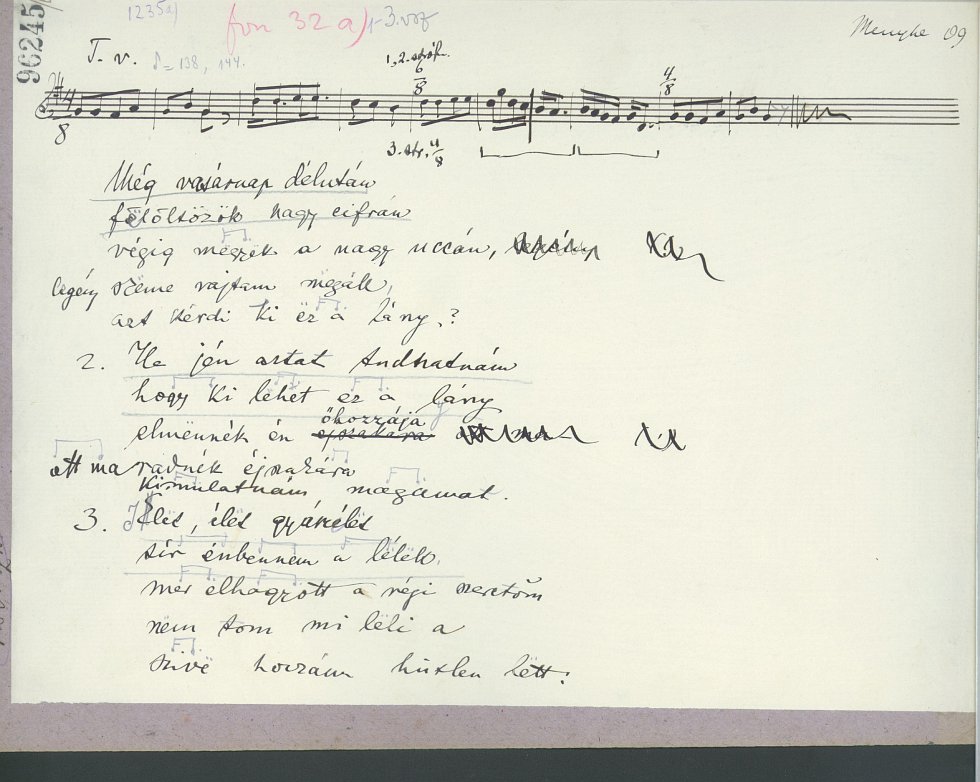 96245
1235a)
fon 32 a) 1-3. vsz
Menyhe 09
T. v. ♪=138, 144.
1, 2. stróf.
6/8
4/8
8
3. str. 4/8
Még vasárnap délután
fëlöltözök nagy cifrán
végig mëgyëk a nagy uccán,
legény szëme rajtam mëgáll,
azt kérdi ki ëz a lány?
2. Ha jén aztat tudhatnám
hogy ki lëhet ëz a lány
elmënnék én őhozzája
ott maradnék éjszakára
kimulatnám magamat.
3. Élës, élës gyánélës
sír énbennem a lélëk,
mer elhagyott a régi szeretőm
nëm tom mi lëli a
szivë hozzám hűtlen lëtt.